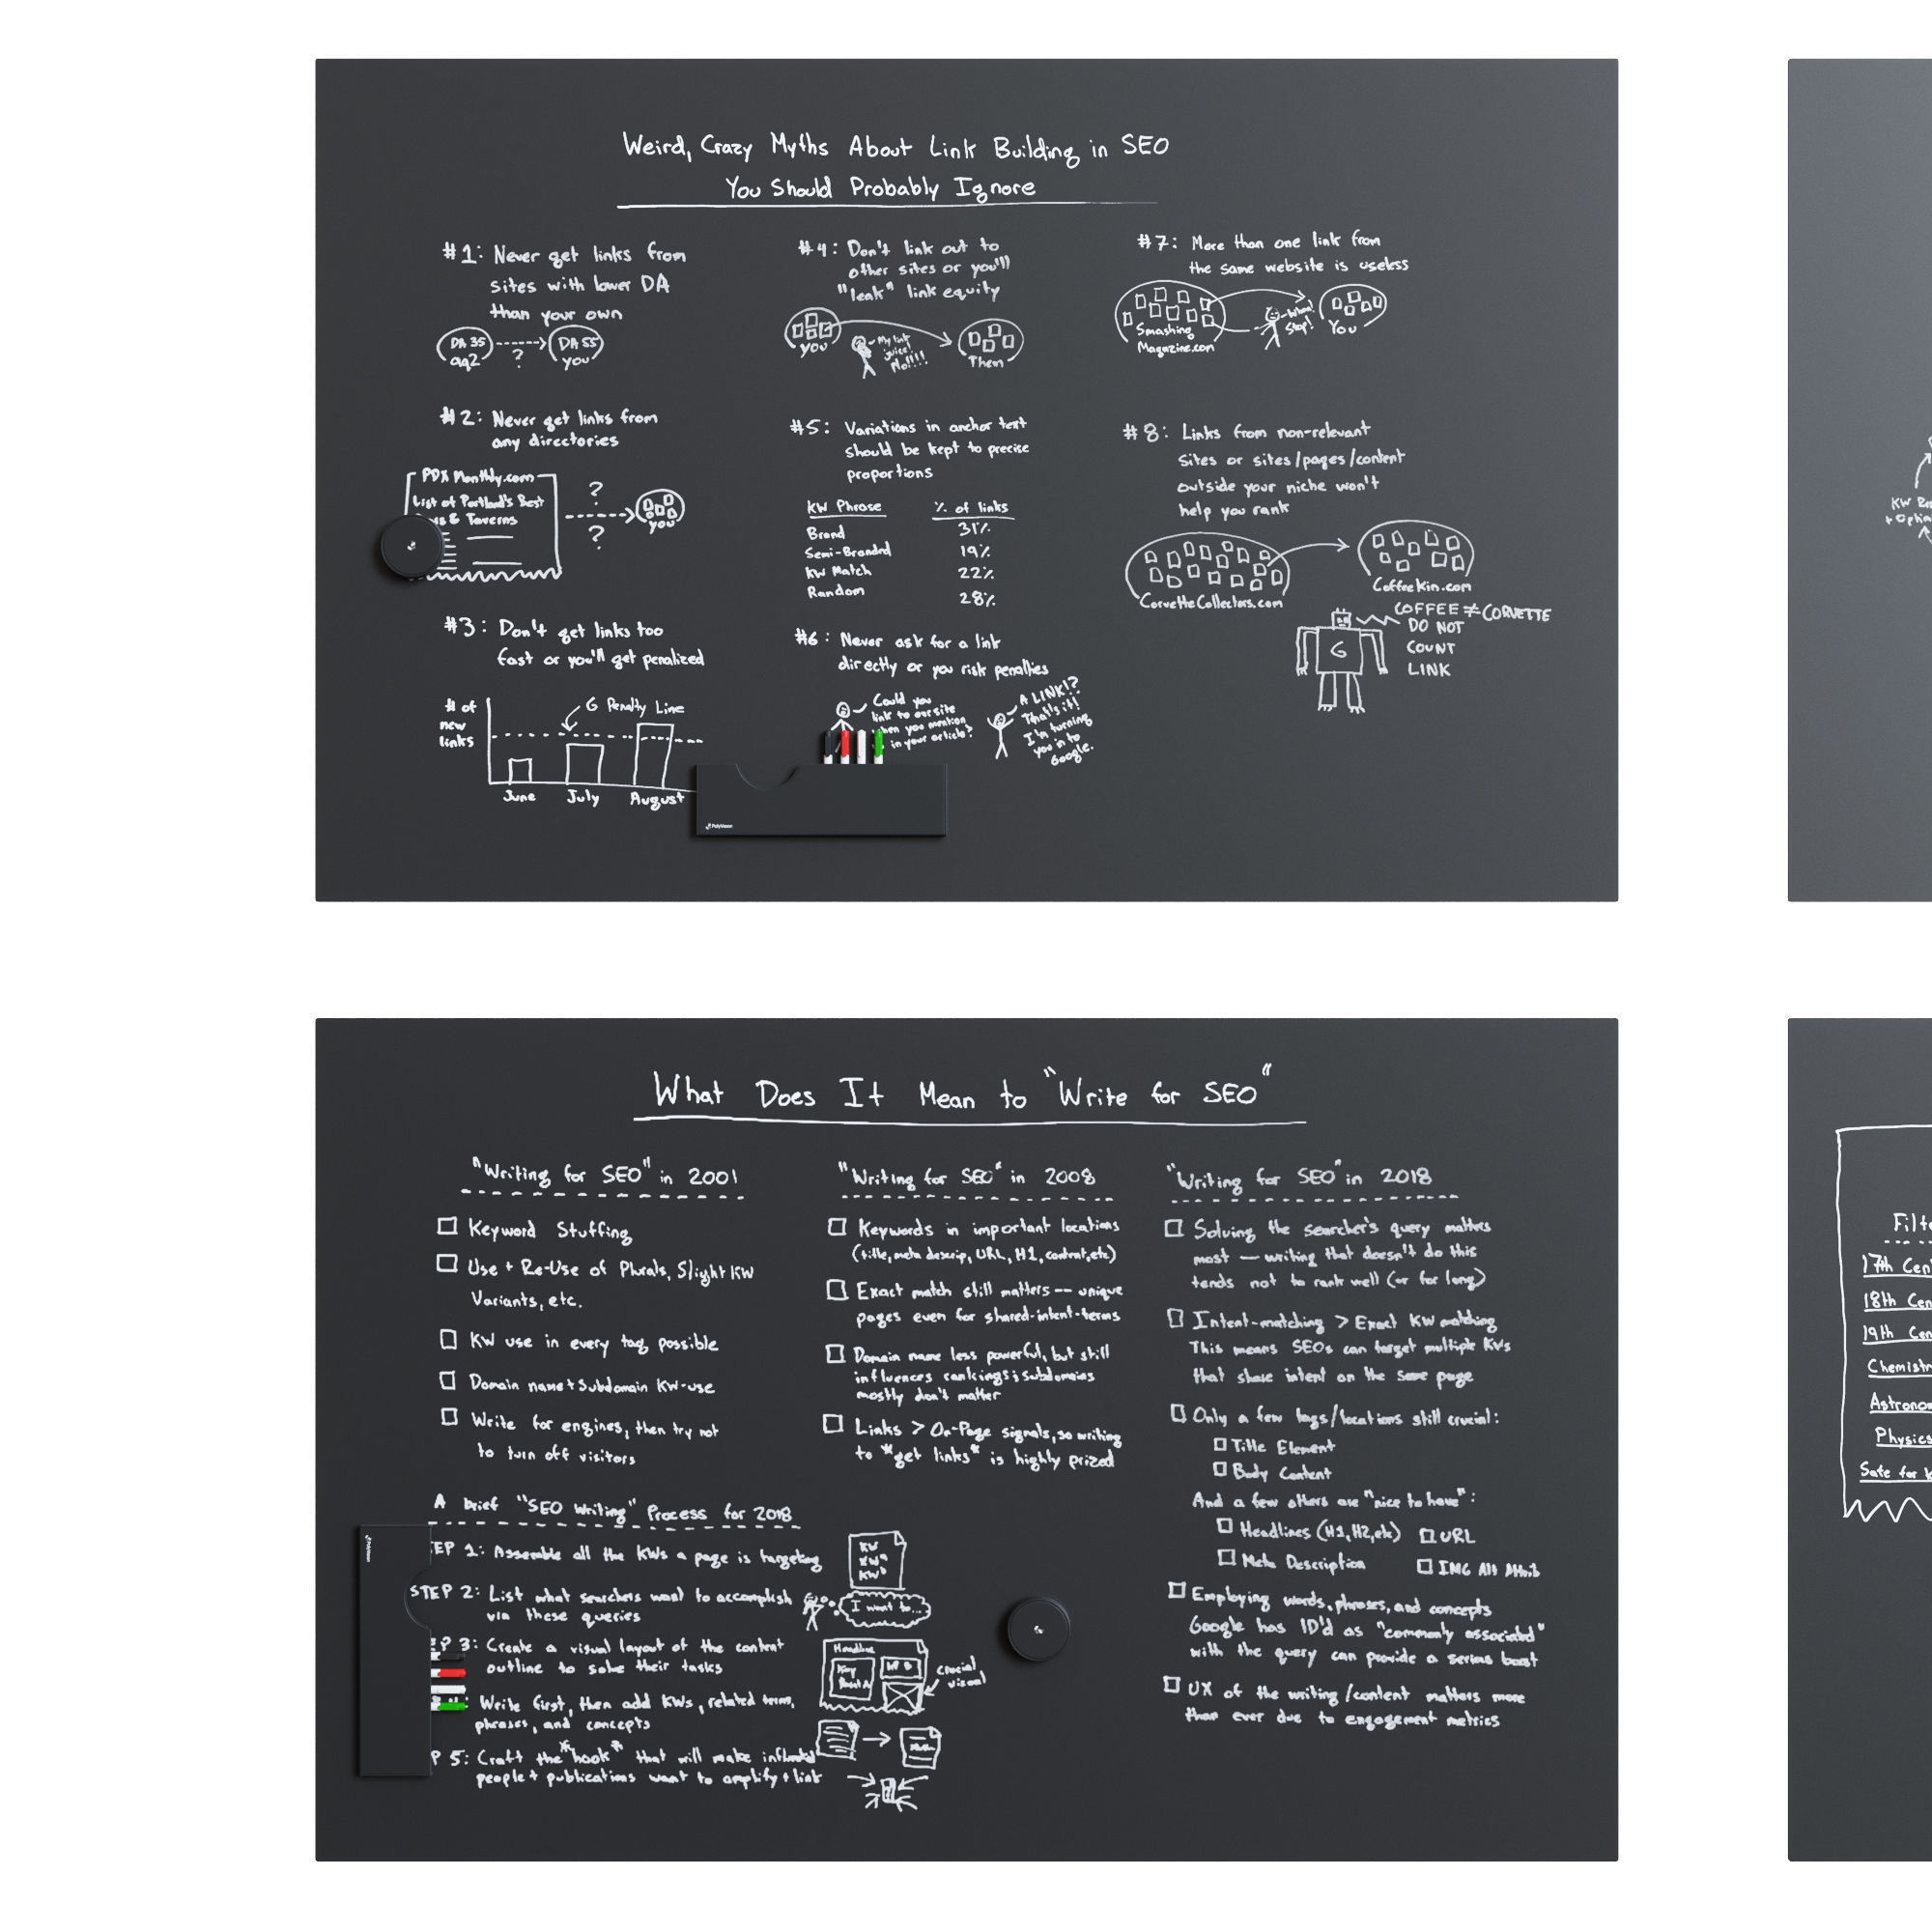 Weird, Crazy Myths About Link Building in SEO
You Should Probably Ignore
#1: Never get links from
sites with lower DA
than your own
DA 35
DA 55
?
you
#2: Never get links from
any directories
PDX Monthly.com
List of Portland's Best
& Taverns
?
?
you
#3: Don't get links too
fast or you'll get penalized
# of
new
links
G Penalty Line
June July August
#4: Don't link out to
other sites or you'll
"leak" link equity
you
My link
juice!
No!!!!
Them
#5: Variations in anchor text
should be kept to precise
proportions
KW Phrase % of links
Brand 31%
Semi-Branded 19%
KW Match 22%
Random 28%
#6: Never ask for a link
directly or you risk penalties
Could you
link to our site
when you mention
in your article?
A LINK!?
That's it!
I'm turning
you in to
Google.
PolyVision
#7: More than one link from
the same website is useless
Smashing
Magazine.com
Stop!
You
#8: Links from non-relevant
sites or sites/pages/content
outside your niche won't
help you rank
CorvetteCollectors.com
CoffeeKin.com
G
COFFEE ≠ CORVETTE
DO NOT
COUNT
LINK
KW
What Does It Mean to "Write for SEO"
"Writing for SEO" in 2001
Keyword Stuffing
Use + Re-Use of Plurals, Slight KW
Variants, etc.
KW use in every tag possible
Domain name + Subdomain KW-use
Write for engines, then try not
to turn off visitors
"Writing for SEO" in 2008
Keywords in important locations
(title, meta descrip, URL, H1, content, etc)
Exact match still matters -- unique
pages even for shared-intent-terms
Domain name less powerful, but still
influences rankings; subdomains
mostly don't matter
Links > On-Page signals, so writing
to *get links* is highly prized
"Writing for SEO" in 2018
Solving the searcher's query matters
most — writing that doesn't do this
tends not to rank well (or for long)
Intent-matching > Exact KW matching
This means SEOs can target multiple KWs
that share intent on the same page
Only a few tags/locations still crucial:
Title Element
Body Content
And a few others are "nice to have":
Headlines (H1, H2, etc) URL
Meta Description IMG Alt Attrib
Employing words, phrases, and concepts
Google has ID'd as "commonly associated"
with the query can provide a serious boost
UX of the writing/content matters more
than ever due to engagement metrics
A brief "SEO Writing" Process for 2018
EP 1: Assemble all the KWs a page is targeting
STEP 2: List what searchers want to accomplish
via these queries
EP 3: Create a visual layout of the content
outline to solve their tasks
Write first, then add KWs, related terms,
phrases, and concepts
P 5: Craft the *hook* that will make influential
people + publications want to amplify + link
KW
KWa
KWb
I want to...
Headline
Key
crucial
visual
PolyVision
Filte
17th Cen
18th Cen
19th Cen
Chemistr
Astronom
Physics